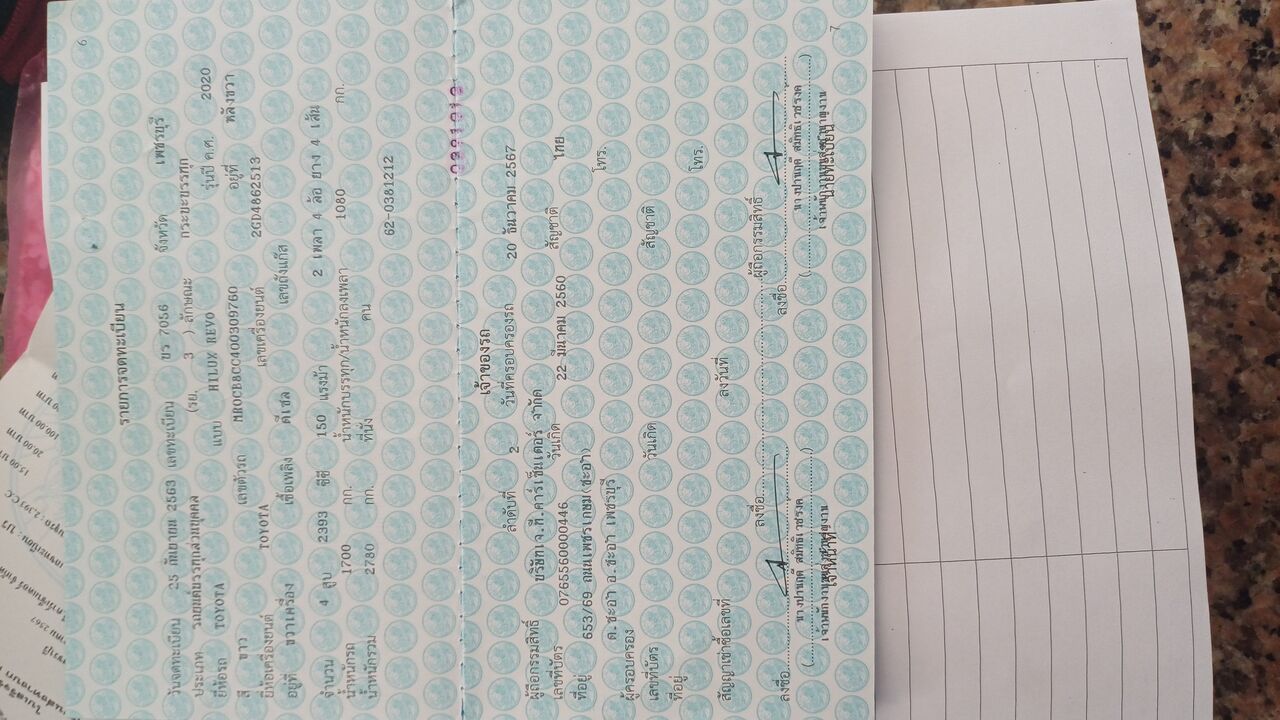 6
รายการจดทะเบียน
วันจดทะเบียน 25 กันยายน 2563 เลขทะเบียน ขร 7056 จังหวัด เพชรบุรี
ประเภท รถยนต์บรรทุกส่วนบุคคล (รย. 3 ) ลักษณะ กระบะบรรทุก
ยี่ห้อรถ TOYOTA แบบ HILUX REVO รุ่นปี ค.ศ. 2020
สี ขาว เลขตัวรถ MR0CB8CC400309760 อยู่ที่ หลังขวา
ยี่ห้อเครื่องยนต์ TOYOTA เลขเครื่องยนต์ 2GD4862513
อยู่ที่ ขวาเครื่อง เชื้อเพลิง ดีเซล เลขถังแก๊ส
จำนวน 4 สูบ 2393 ซีซี 150 แรงม้า 2 เพลา 4 ล้อ ยาง 4 เส้น
น้ำหนักรถ 1700 กก. น้ำหนักบรรทุก/น้ำหนักลงเพลา 1080 กก.
น้ำหนักรวม 2780 กก. ที่นั่ง คน
62-0381212
เจ้าของรถ
ลำดับที่ 2 วันที่ครอบครองรถ 20 ธันวาคม 2567
ผู้ถือกรรมสิทธิ์ บริษัทเจ.ที.คาร์เซ็นเตอร์ จำกัด
เลขที่บัตร 0765560000446 วันเกิด 22 มีนาคม 2560 สัญชาติ ไทย
ที่อยู่ 653/69 ถนนเพชรเกษม(ชะอำ)
ต.ชะอำ อ.ชะอำ เพชรบุรี โทร.
ผู้ครอบครอง
เลขที่บัตร วันเกิด สัญชาติ
ที่อยู่ โทร.
สัญญาเช่าซื้อเลขที่ ลงวันที่
ลงชื่อ ลงชื่อ ผู้ถือกรรมสิทธิ์
ลงชื่อ
7
15.00 บาท
20.00 บาท
100.00 บาท